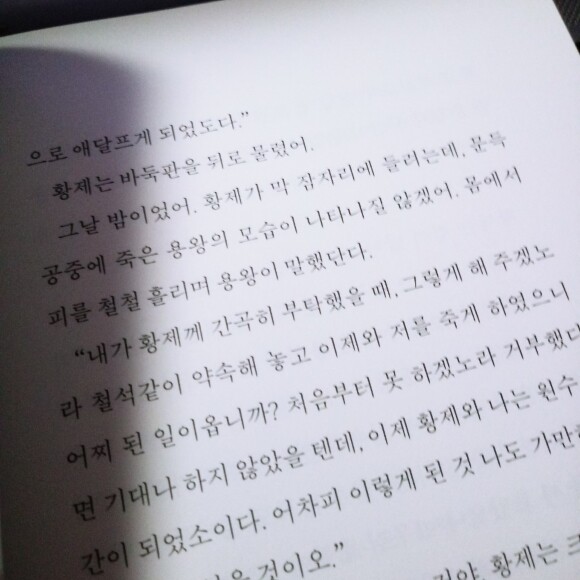 으로 애달프게 되었도다.”
황제는 바둑판을 뒤로 물렸어.
그날 밤이었어. 황제가 막 잠자리에 들려는데, 문득
공중에 죽은 용왕의 모습이 나타나질 않겠어. 몸에서
피를 철철 흘리며 용왕이 말했단다.
“내가 황제께 간곡히 부탁했을 때, 그렇게 해 주겠노
라 철석같이 약속해 놓고 이제와 저를 죽게 하였으니
어찌 된 일이옵니까? 처음부터 못 하겠노라 거부했다
면 기대나 하지 않았을 텐데, 이제 황제와 나는 원수
간이 되었소이다. 어차피 이렇게 된 것 나도 가만히
것이오.”
황제는